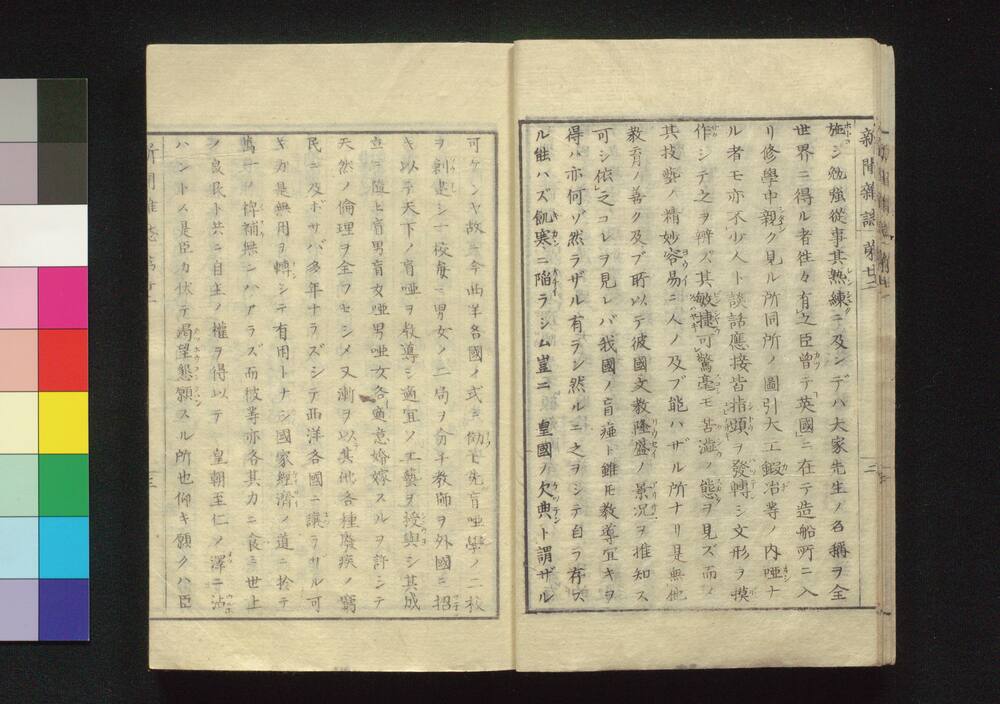 新聞雜誌 第廿二
施シ勉強從事其熟練ニ及ンデハ大家先生ノ名稱ヲ全
世界ニ得ル者往々有之臣曾テ英國ニ在テ造船所ニ入
リ修學中親ク見ル所同所ノ圖引大工鍛冶等ノ内啞ナ
ル者モ亦不少人ト談話應接皆指頭ヲ發轉シ文形ヲ摸
作シテ之ヲ辨ズ其敏捷可驚毫モ苦澁ノ態ヲ見ズ而ノ
其技藝ノ精妙容易ニ人ノ及ブ能ハザル所ナリ是無他
教育ノ善ク及ブ所以テ彼國文教隆盛ノ景況ヲ推知ス
可シ依之コレヲ見レバ我國ノ盲痷ト雖𪜈教導宜キヲ
得ハ亦何ゾ然ラザル有ラン然ルニ之ヲシテ自ラ存ス
ル能ハズ飢寒ニ陷ラシム豈ニ 皇國ノ欠典ト謂ザル
可ケンヤ故ニ今西洋各國ノ式ニ傚ヒ先盲啞學ノ二校
ヲ創建シ一校毎ニ男女ノ二局ヲ分チ教師ヲ外國ニ招
キ以テ天下ノ盲啞ヲ教導シ適宜ノ工藝ヲ授與シ其成
立ニ隨ヒ盲男盲女啞男啞女各適意婚嫁スルヲ許シテ
天然ノ倫理ヲ全フセシメ又漸ヲ以テ其他各種廢疾ノ窮
民ニ及ボサバ多年ナラズシテ西洋各國ニ讓ラザル可
キカ是無用ヲ轉シテ有用トナシ國家經濟ノ道ニ於テ
萬一ノ裨補無ンハアラズ而彼等亦各其力ニ食ミ世上
ノ良民ト共ニ自主ノ權ヲ得以テ 皇朝至仁ノ澤ニ沾
ハントス是臣カ伏テ渴望懇願スル所也仰キ願クハ臣